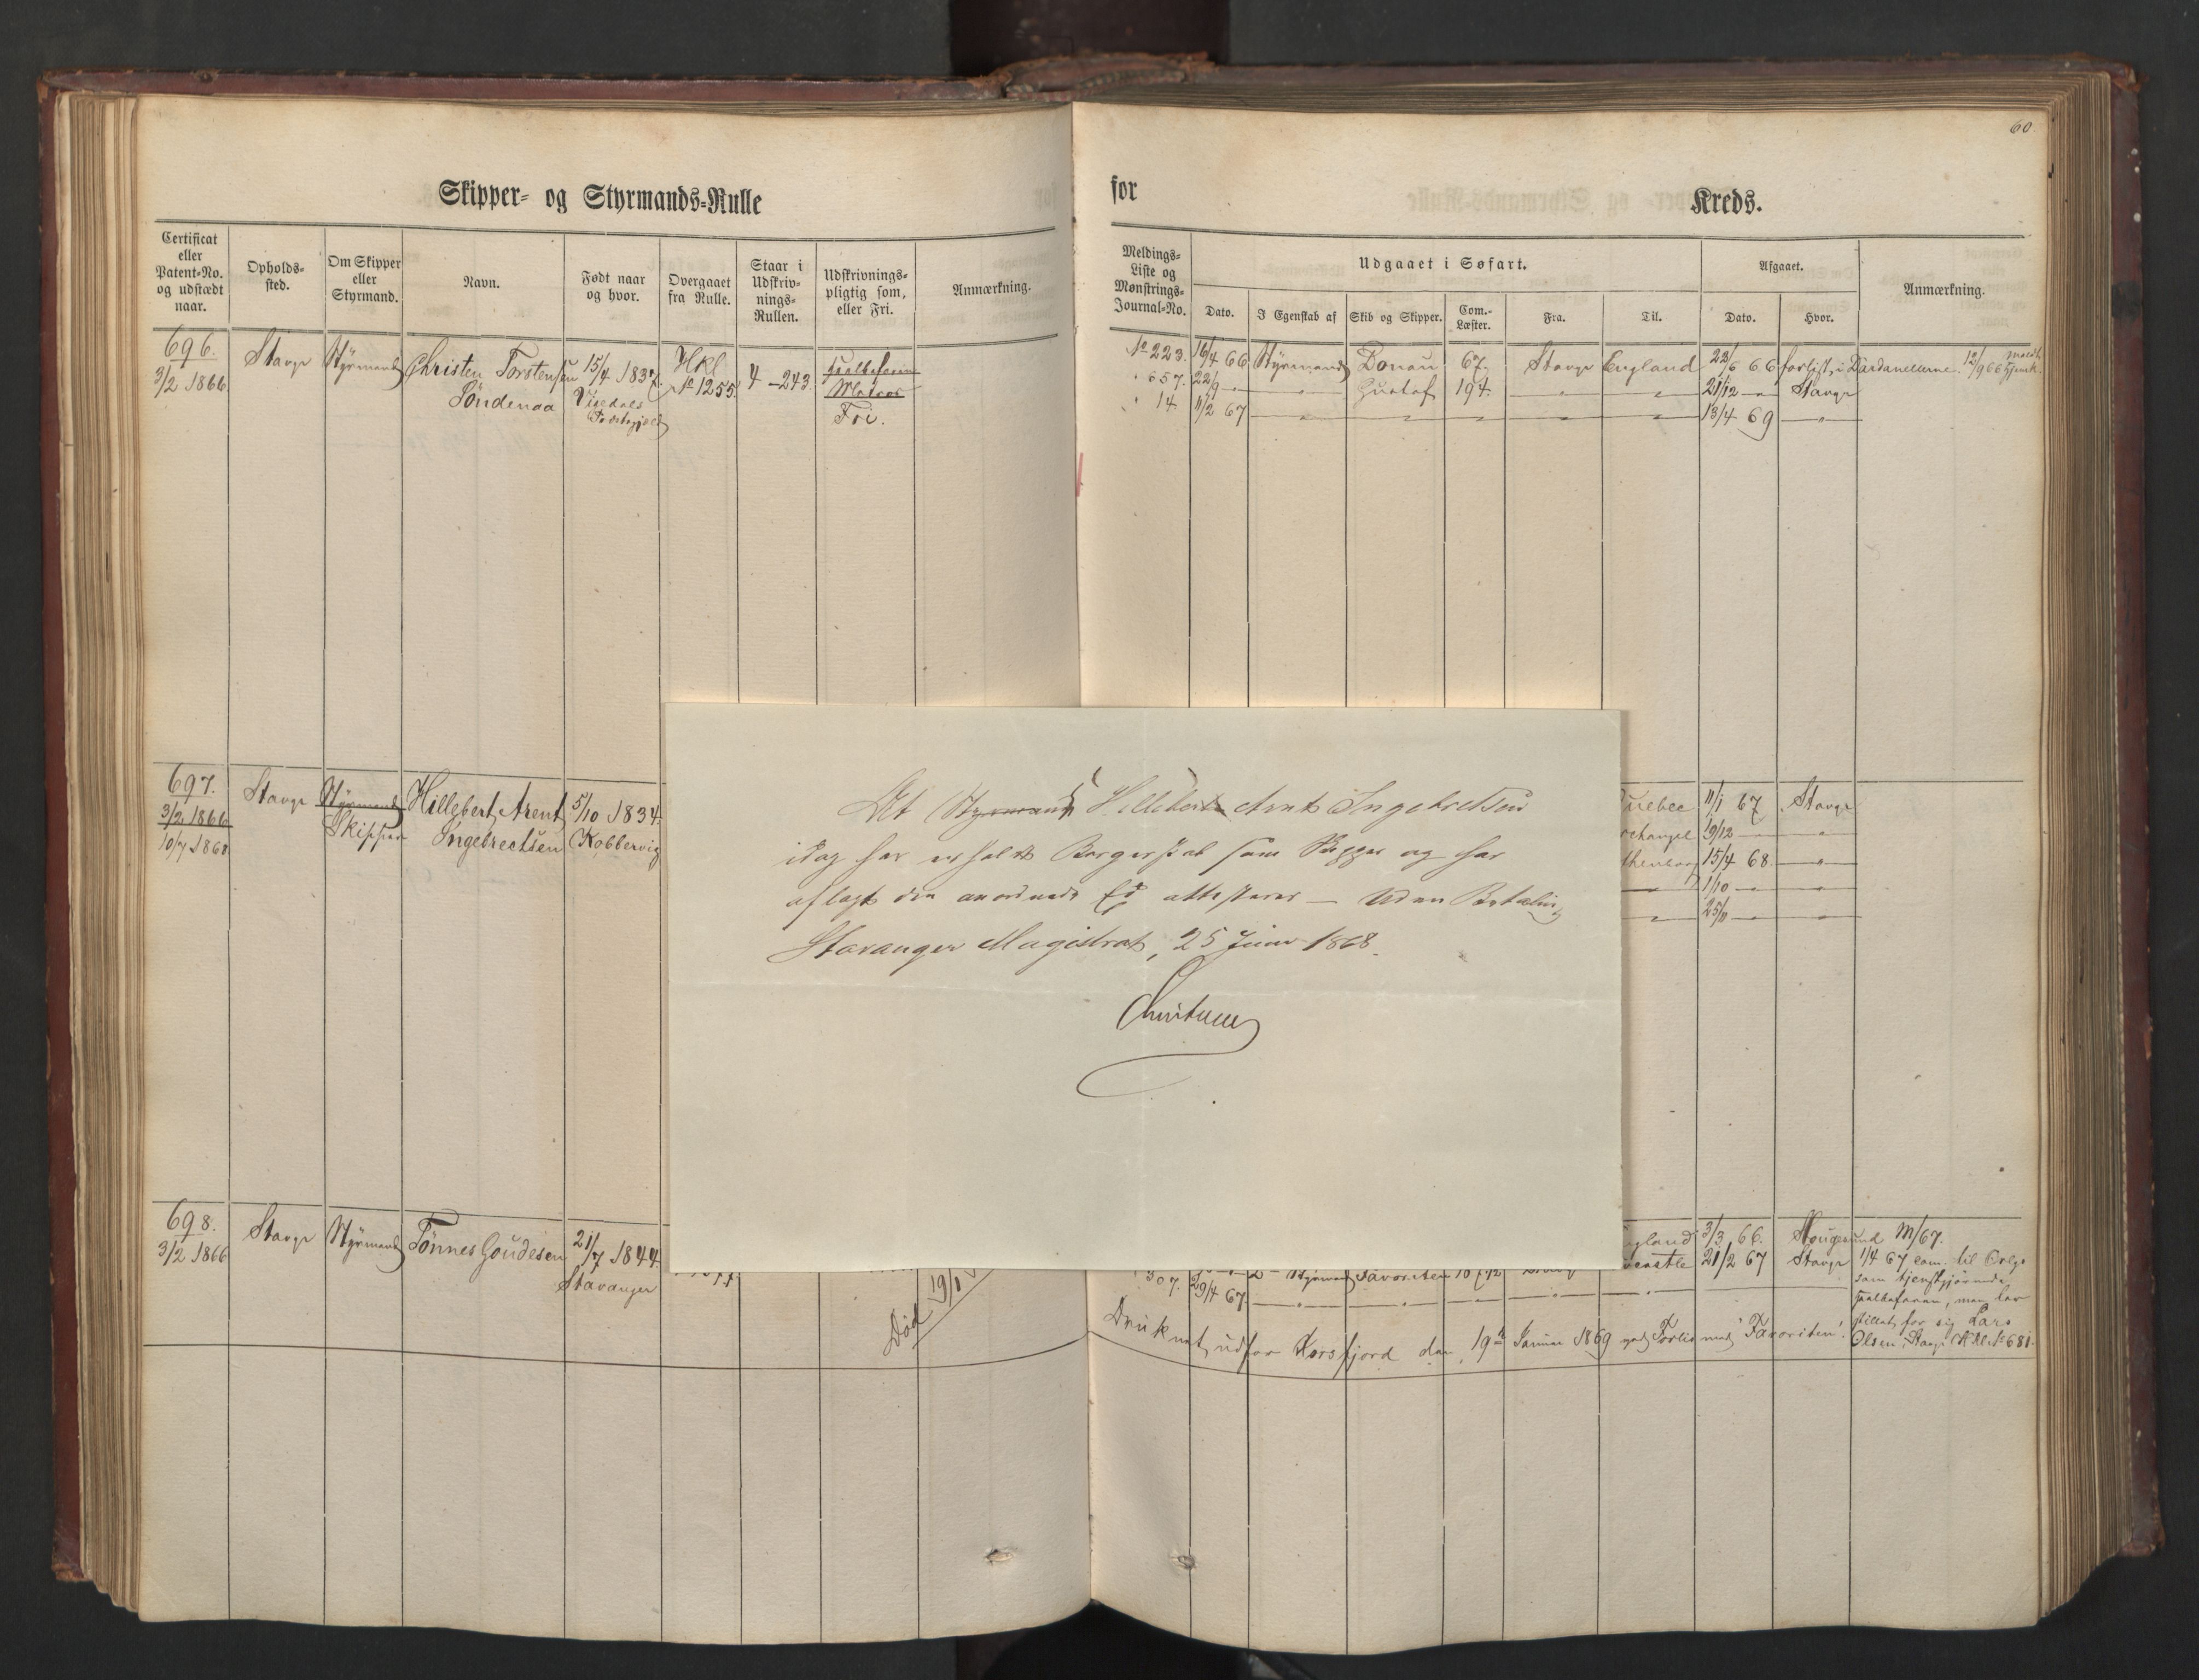 60.
Skipper- og Styrmands-Rulle
for Kreds.
Certificat eller Patent-No. og udstædt naar.
Opholds-sted.
Om Skipper eller Styrmand.
Navn.
Født naar og hvor.
Overgaaet fra Rulle.
Staar i Udskriv-nings-Rullen.
Udskrivnings-pligtig som, eller Fri.
Anmærkning.
Meldings-Liste og Mønstrings-Journal-No.
Udgaaet i Søfart.
Dato.
I Egenskab af
Skib og Skipper.
Com.-Læster.
Fra.
Til.
Afgaaet.
Dato.
Hvor.
Anmærkning.
696.
3/2 1866.
Stavgr
Styrmand
Christen Torstensen
Söndenaa
15/4 1837.
Præstegjeld
Hkl
No 1255.
4 - 243.
Matros
Fri.
No 223. 16/4 66 Styrmand Donau 67. Stavgr England 22/6 66 forlist i Dardanellerne. 12/9 66
" 657. 22/9 - " Gustaf 194. - " 21/12 - Stavgr
" 14. 11/2 67 - " - " - " 13/4 69 - "
697.
3/2 1866
10/7 1868
Stavgr
Styrmand
Skipper
Hillebert Arent
Ingebrechtsen
5/10 1834.
Kobbervig
uebec 11/1 67 Stavgr
rchangel 19/12 - "
thenborg 15/4 68 - "
" 1/10 - "
" 25/11 - "
At Styrmand Hillebert Arnt Ingebretsen
idag har erholdt Borgerskab som Skipper og har
aflagt den anordnede Ed attesteres — Uden Betaling
Stavanger Magistrat, 25 Juni 1868.
698.
3/2 1866
Stavgr
Styrmand
Tönnes Goudesen
21/7 1844.
Stavanger
Död 19/1
307. 29/4 67.
ngland 3/3 66. Hougesund M/67.
wcastle 21/2 67 Stavgr 1/4 67 com. til Orlogs
som tjenstgjörende
, men har
stillet for sig Lars
Olsen, Stavgr Hkl No 681.
Druknet udfor Korsfjord den 19de Januar 1869 ved Forlis med "Favoriten".